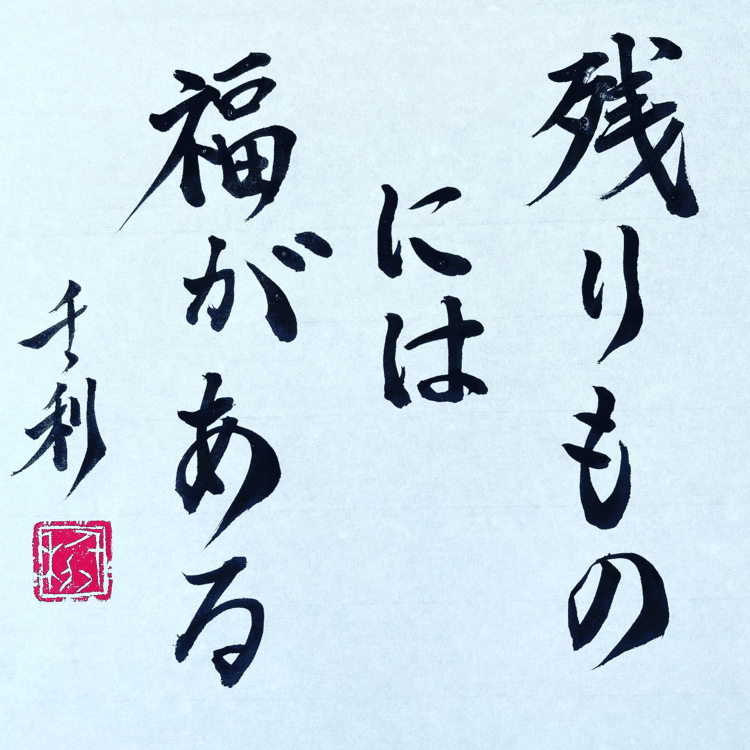 残りもの
には
福がある
千利